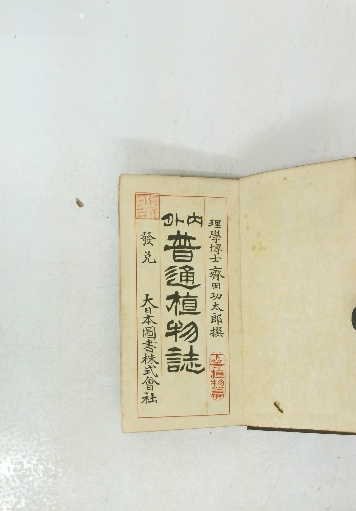 理學博士 齋田功太郎撰
内外
普通植物誌
發兌 大日本圖書株式會社